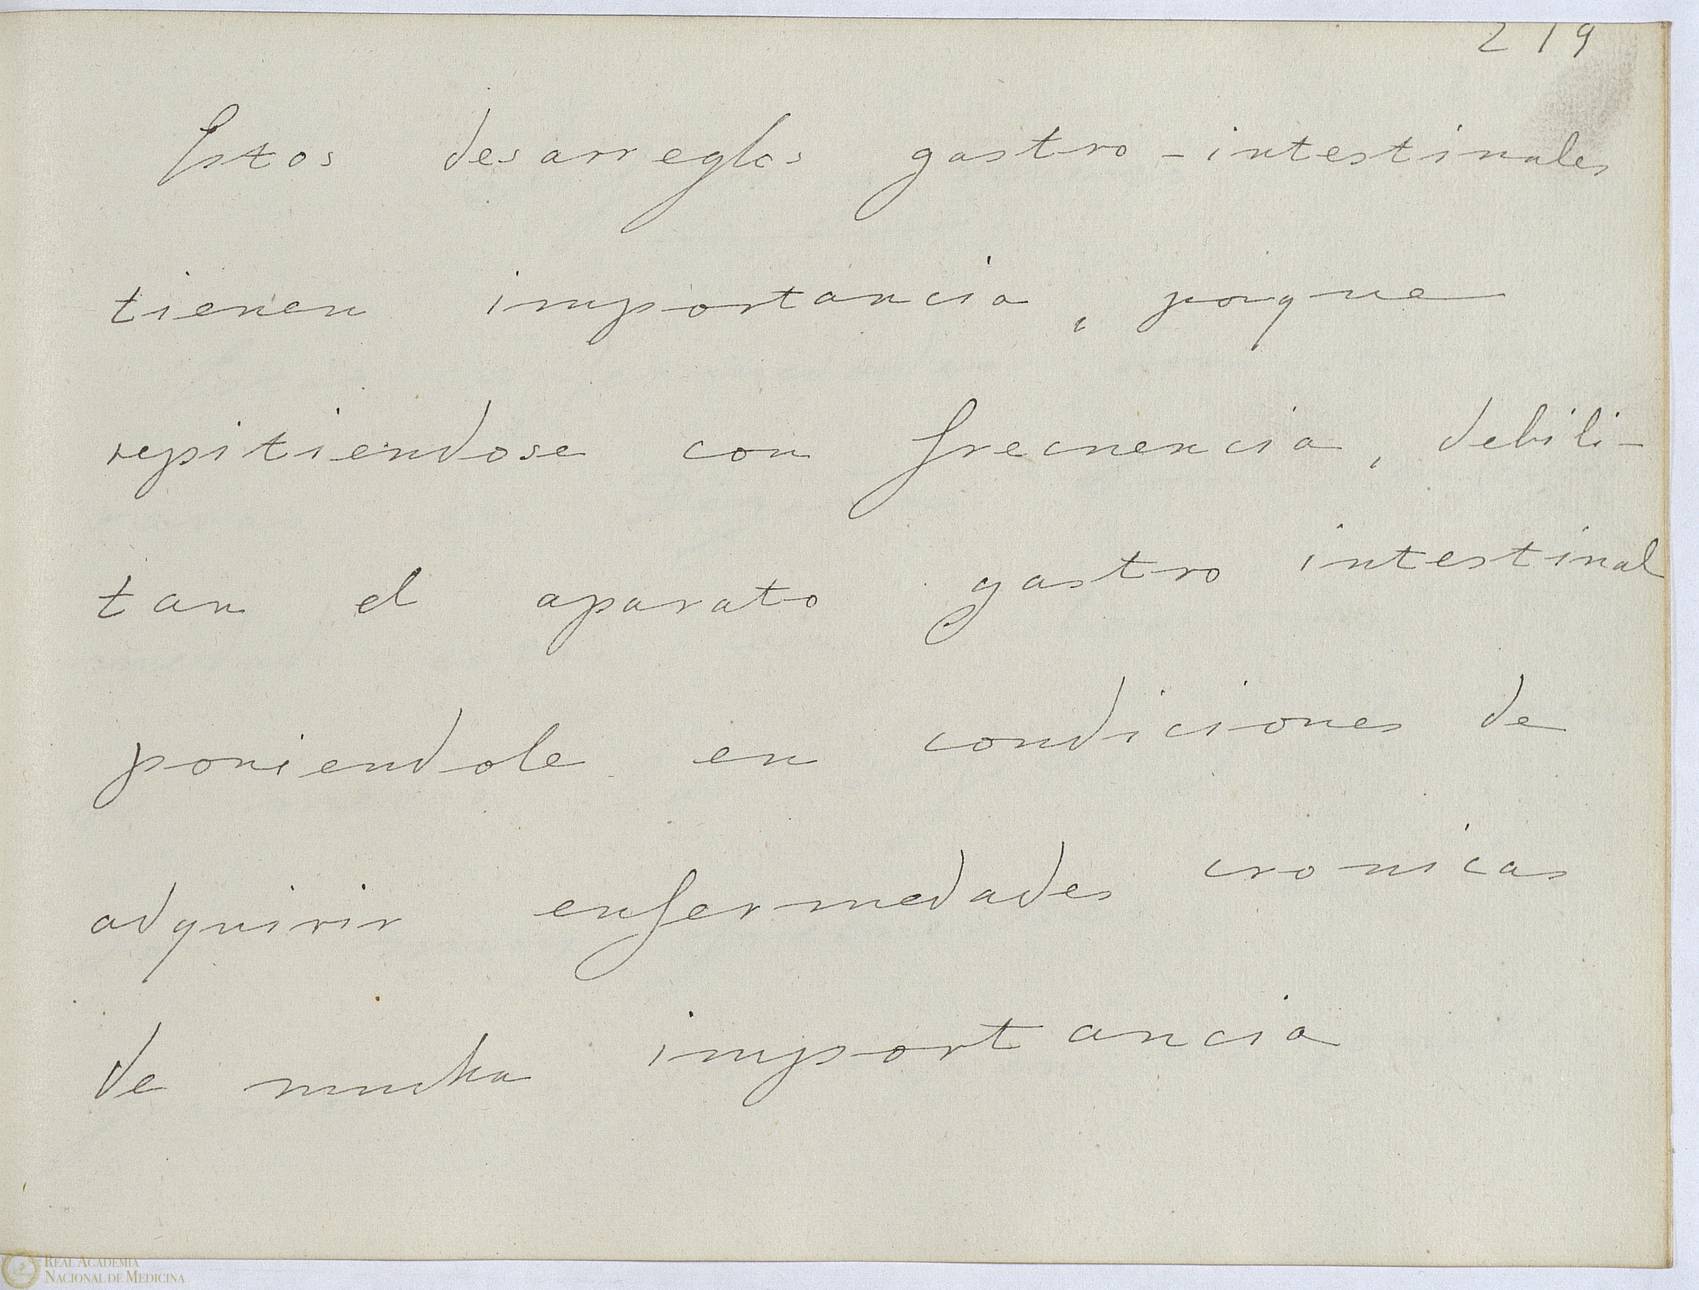 219
Estos desarreglos gastro-intestinales
tienen importancia, porque
repitiendose con frecuencia, debili-
tan el aparato gastro intestinal
poniendole en condiciones de
adquirir enfermedades cronicas
de mucha importancia
REAL ACADEMIA
NACIONAL DE MEDICINA